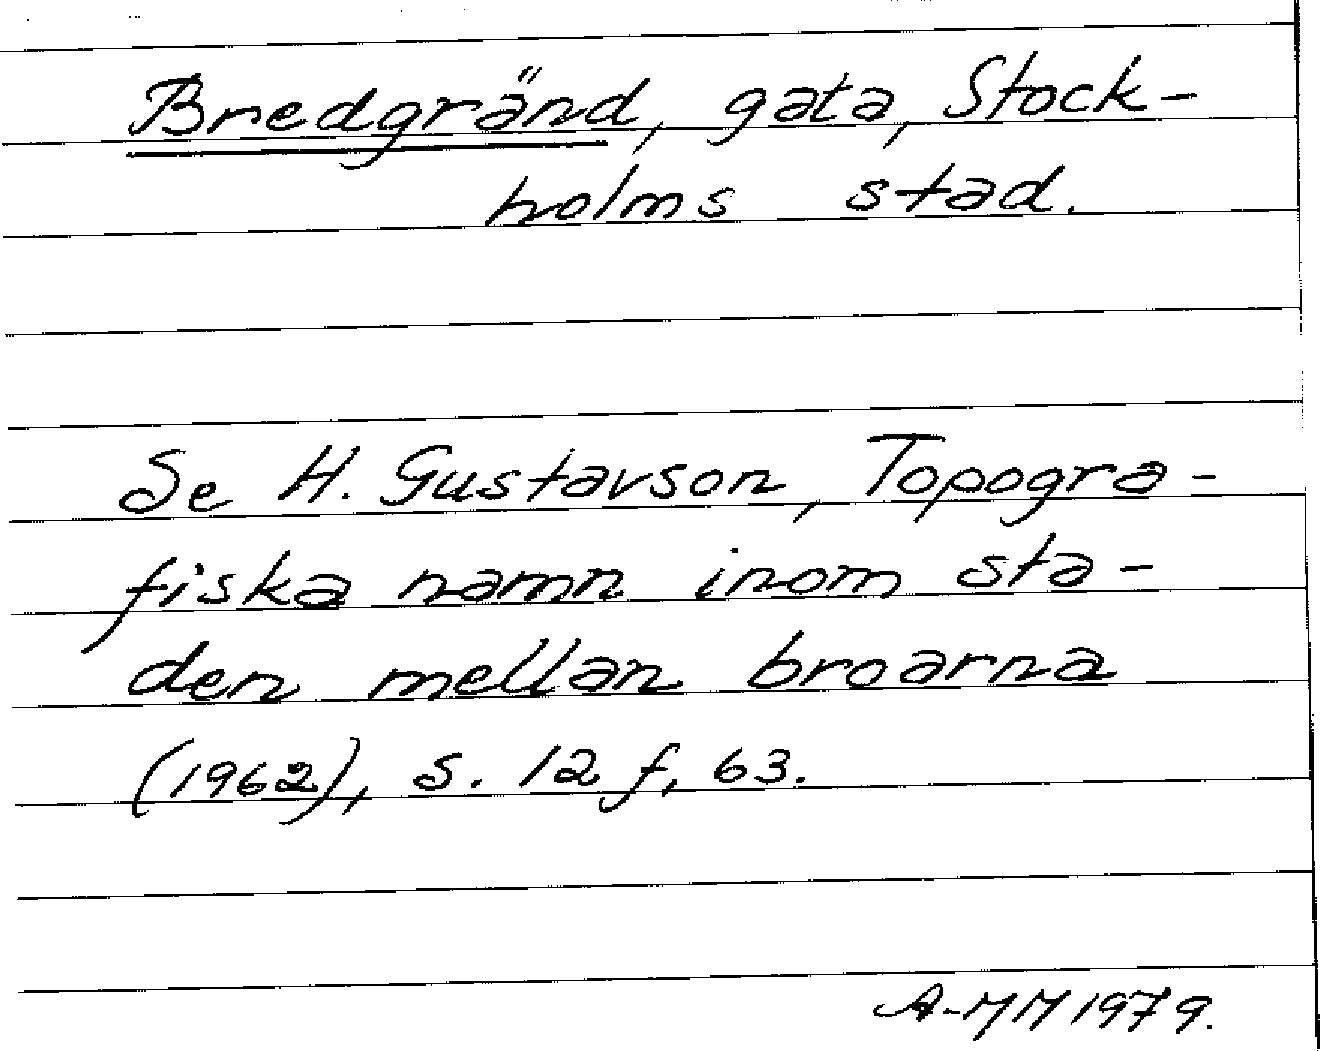 Bredgränd, gata, Stock-
holms stad.
Se H. Gustavson, Topogra-
fiska namn inom sta-
den mellan broarna
(1962), s. 12 f, 63.
A-MM 1979.